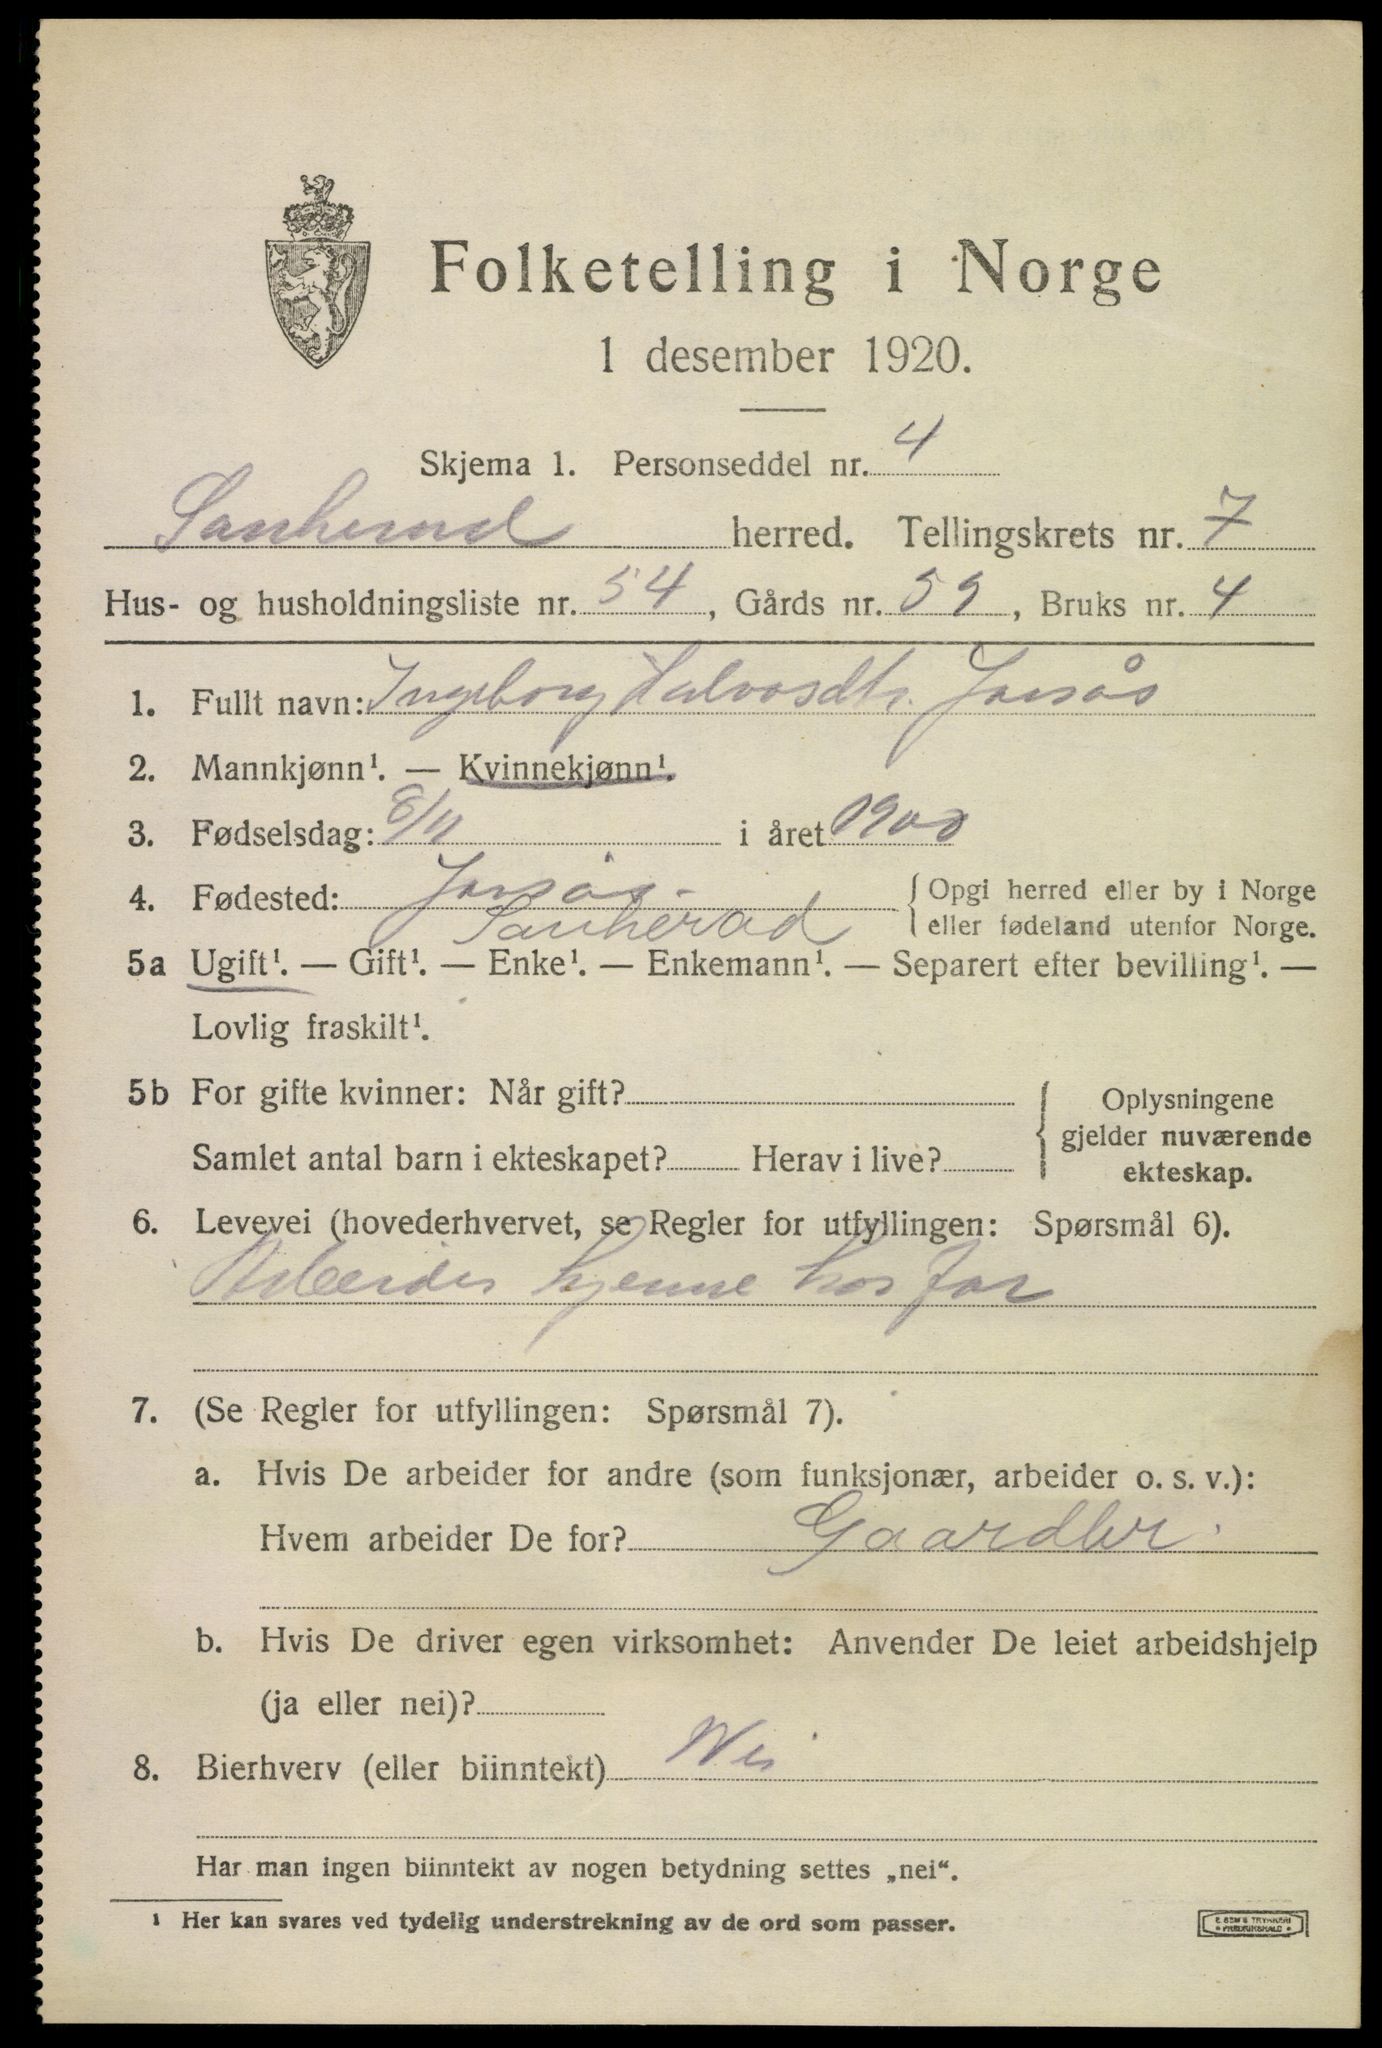 Folketelling i Norge
1 desember 1920.
Skjema 1. Personseddel nr. 4
Sauherad herred. Tellingskrets nr. 7
Hus- og husholdningsliste nr. 54, Gårds nr. 59, Bruks nr. 4
1. Fullt navn: Ingeborg Halvosdtr. Jarsås
2. Mannkjønn¹. — Kvinnekjønn¹.
3. Fødselsdag: 8/11 i året 1900
4. Fødested: Jarsås. { Opgi herred eller by i Norge
Sauherad eller fødeland utenfor Norge.
5a Ugift¹. — Gift¹. — Enke¹. — Enkemann¹. — Separert efter bevilling¹. —
Lovlig fraskilt¹.
5b For gifte kvinner: Når gift? { Oplysningene
gjelder nuværende
Samlet antal barn i ekteskapet? Herav i live?
ekteskap.
6. Levevei (hovederhvervet, se Regler for utfyllingen: Spørsmål 6).
Arbeider hjemme hos far
7. (Se Regler for utfyllingen: Spørsmål 7).
a. Hvis De arbeider for andre (som funksjonær, arbeider o. s. v.):
Hvem arbeider De for? Gaardbr.
b. Hvis De driver egen virksomhet: Anvender De leiet arbeidshjelp
(ja eller nei)?
8. Bierhverv (eller biinntekt) Nei
Har man ingen biinntekt av nogen betydning settes „nei“.
¹ Her kan svares ved tydelig understrekning av de ord som passer.
E. SEM'S TRYKKERI
FREDRIKSHALD